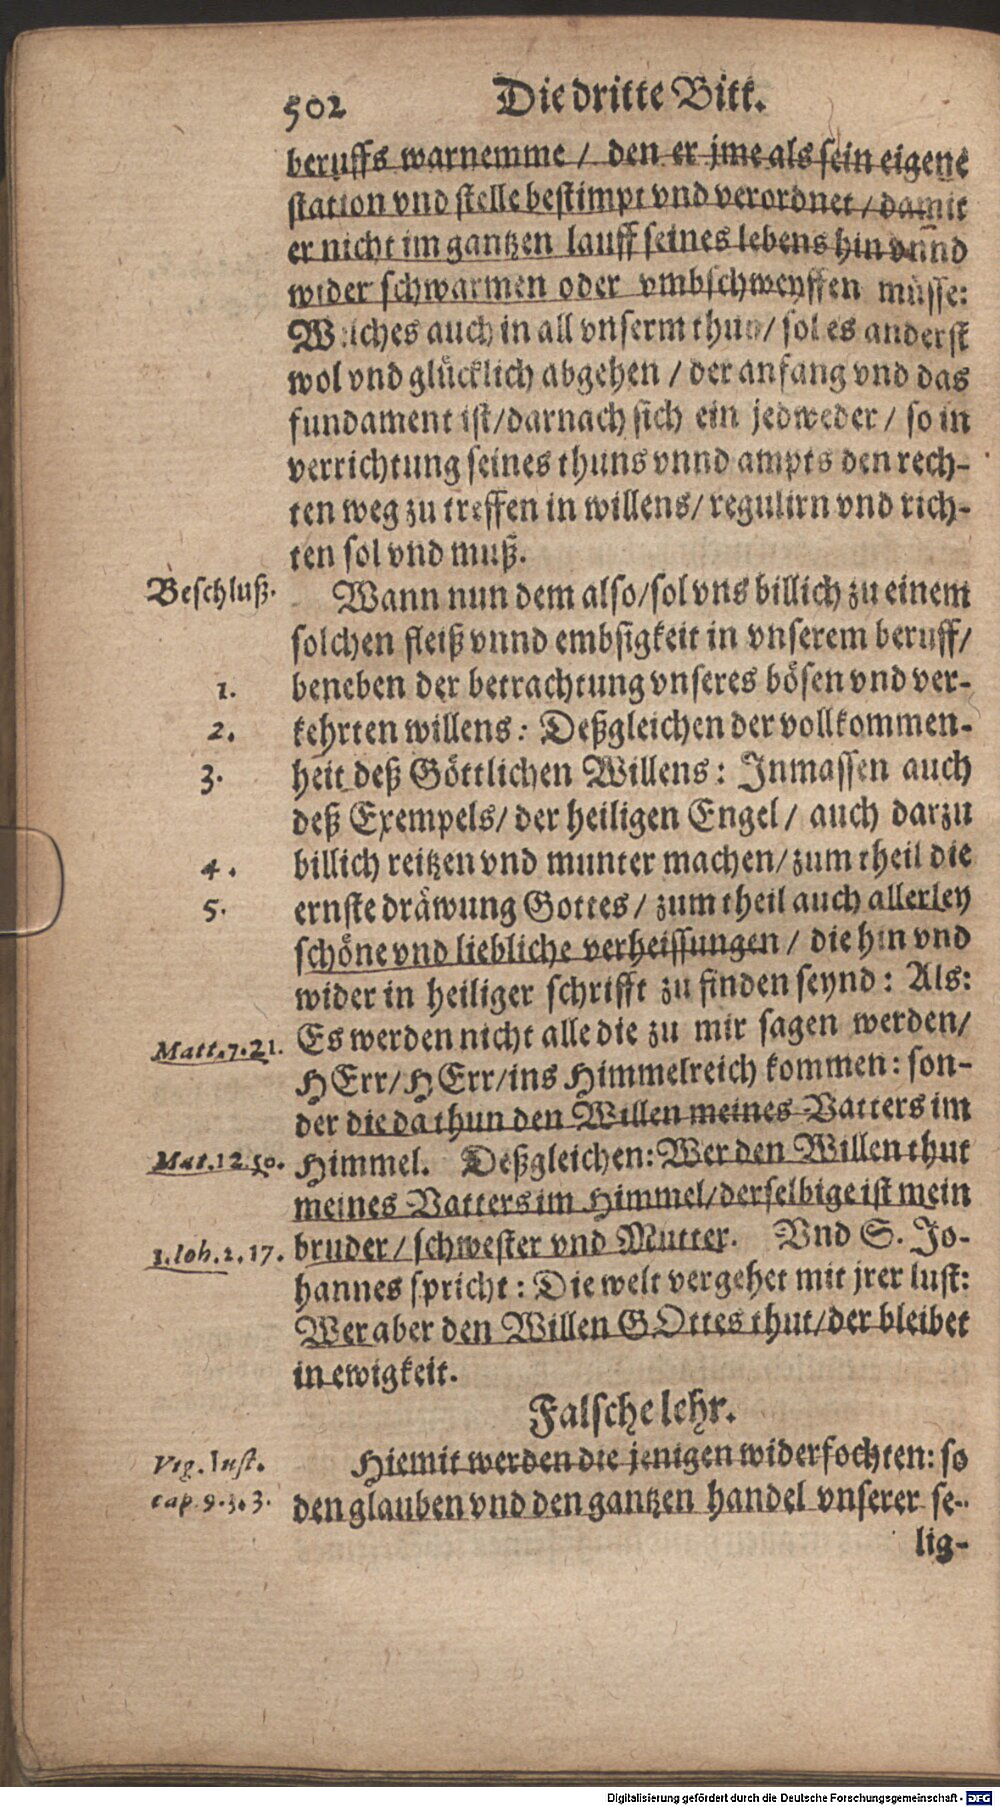 502 Die dritte Bitt.
beruffs warnemme / den er jme als sein eigene
station vnd stelle bestimpt vnd verordnet / damit
er nicht im gantzen lauff seines lebens hin vnnd
wider schwarmen oder vmbschweyffen müsse:
Welches auch in all vnserm thun / sol es anderst
wol vnd glücklich abgehen / der anfang vnd das
fundament ist / darnach sich ein jedweder / so in
verrichtung seines thuns vnnd ampts den rech-
ten weg zu treffen in willens / regulirn vnd rich-
ten sol vnd muß.
Beschluß. Wann nun dem also / sol vns billich zu einem
solchen fleiß vnnd embsigkeit in vnserem beruff /
1. beneben der betrachtung vnseres bösen vnd ver-
2. kehrten willens: Deßgleichen der vollkommen-
3. heit deß Göttlichen Willens: Inmassen auch
deß Exempels / der heiligen Engel / auch darzu
4. billich reitzen vnd munter machen / zum theil die
5. ernste dräwung Gottes / zum theil auch allerley
schöne vnd liebliche verheissungen / die hin vnd
wider in heiliger schrifft zu finden seynd: Als:
Matt. 7. 21. Es werden nicht alle die zu mir sagen werden /
HErr / HErr / ins Himmelreich kommen: son-
der die da thun den Willen meines Vatters im
Mat. 12 50. Himmel. Deßgleichen: Wer den Willen thut
meines Vatters im Himmel / derselbige ist mein
1. Ioh. 2. 17. bruder / schwester vnd Mutter. Vnd S. Jo-
hannes spricht: Die welt vergehet mit jrer lust:
Wer aber den Willen GOttes thut / der bleibet
in ewigkeit.
Falsche lehr.
Vig. Inst. Hiemit werden die jenigen widerfochten: so
cap 9. 3. 3. den glauben vnd den gantzen handel vnserer se-
lig-
Digitalisierung gefördert durch die Deutsche Forschungsgemeinschaft - DFG